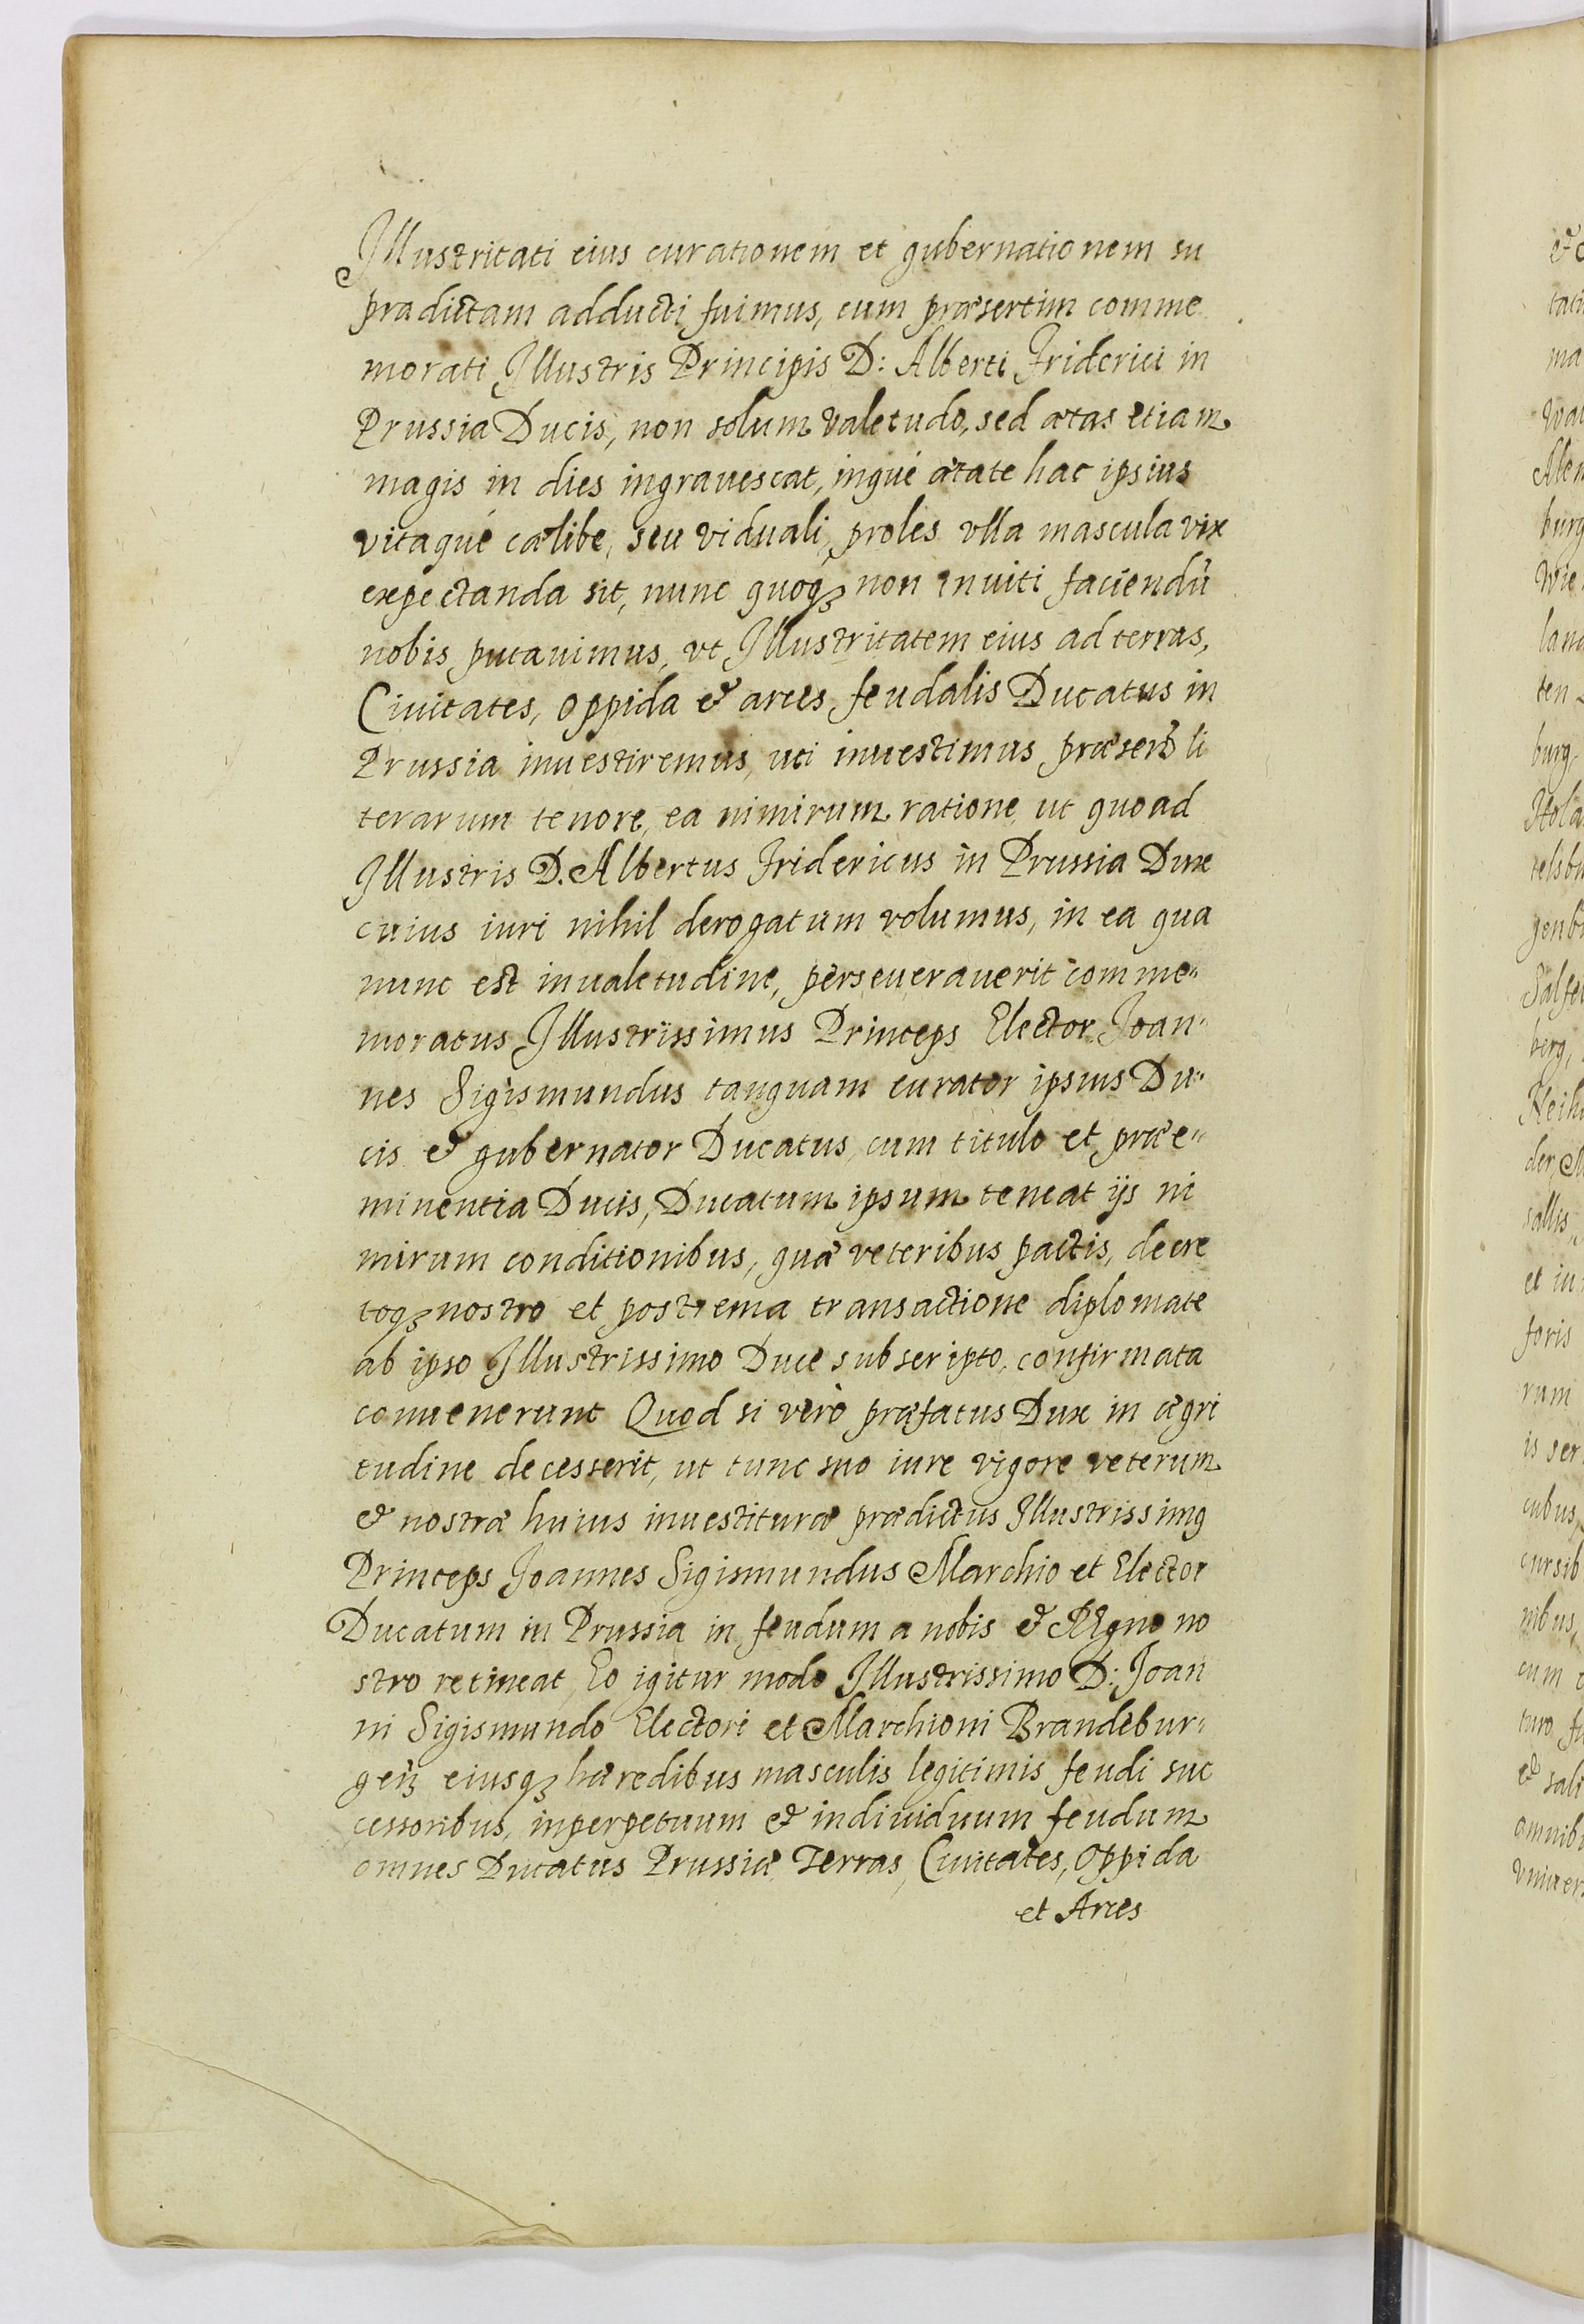 Illustritati eius curationem et gubernationem su
prædictam adducti fuimus, cum præsertim comme
morati Illustris Principis D: Alberti Friderici in
Prussia Ducis, non solum valetudo, sed ætas etiam
magis in dies ingrauescat, inqué ætate hac ipsius
vitaqué cælibe, seu viduali, proles vlla mascula vix
expectanda sit, nunc quoqꝫ non inuiti faciendū
nobis putauimus, vt Illustritatem eius ad terras,
Ciuitates, oppida & arces feudalis Ducatus in
Prussia inuestiremus, uti inuestimus præsent̃ li
terarum tenore, ea nimirum ratione, ut quoad
Illustris D. Albertus Fridericus in Prussia Dux
cuius iuri nihil derogatum volumus, in ea qua
nunc est inualetudine, perseuerauerit comme„
moratus Illustrissimus Princeps Elector Joan„
nes Sigismundus tanquam curator ipsius Du„
cis & gubernator Ducatus, cum titulo et præe„
minentia Ducis, Ducatum ipsum teneat ijs ni
mirum conditionibus, quæ veteribus pactis, decre
toqꝫ nostro et postrema transactione diplomate
ab ipso Illustrissimo Duce subscripto, confirmata
conuenerunt Quod si verò præfatus Dux in ægri
tudine decesserit, ut tunc suo iure vigore veterum
& nostræ huius inuestituræ prædictus Illustrissimꝰ
Princeps Joannes Sigismundus Marchio et Elector
Ducatum in Prussia in feudum a nobis & REgno no
stro retineat, Eo igitur modo Illustrissimo D: Joan
ni Sigismundo Electori et Marchioni Brandebur„
geñ eiusqꝫ hæredibus masculis legitimis feudi suc
cessoribus, inperpetuum & indiuiduum feudum
omnes Ducatus Prussiæ, Terras, Ciuitates, Oppida
et Arces